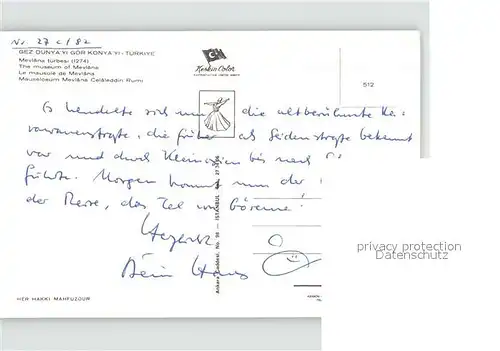 Nr. 27 c/82
GEZ DÜNYA'YI GÖR KONYA'YI - TÜRKİYE
Mevlâna türbesi (1274)
The museum of Mevlâna
Le mausolé de Mevlâna
Mausoleoum Mevlâna Celâleddin Rumi
Keskin Color
512
Es handelte sich um die altberühmte Ka-
rawanenstraße, die früher als Seidenstraße bekannt
war und durch Kleinasien bis nach
führte. Morgen kommt nun der
der Reise, das Tal von Göreme!
Herzlichst
Dein Hans
Ankara Caddesi, No. 98 - İSTANBUL
HER HAKKI MAHFUZDUR
privacy protection
samples.ak-ansichtskarten.de